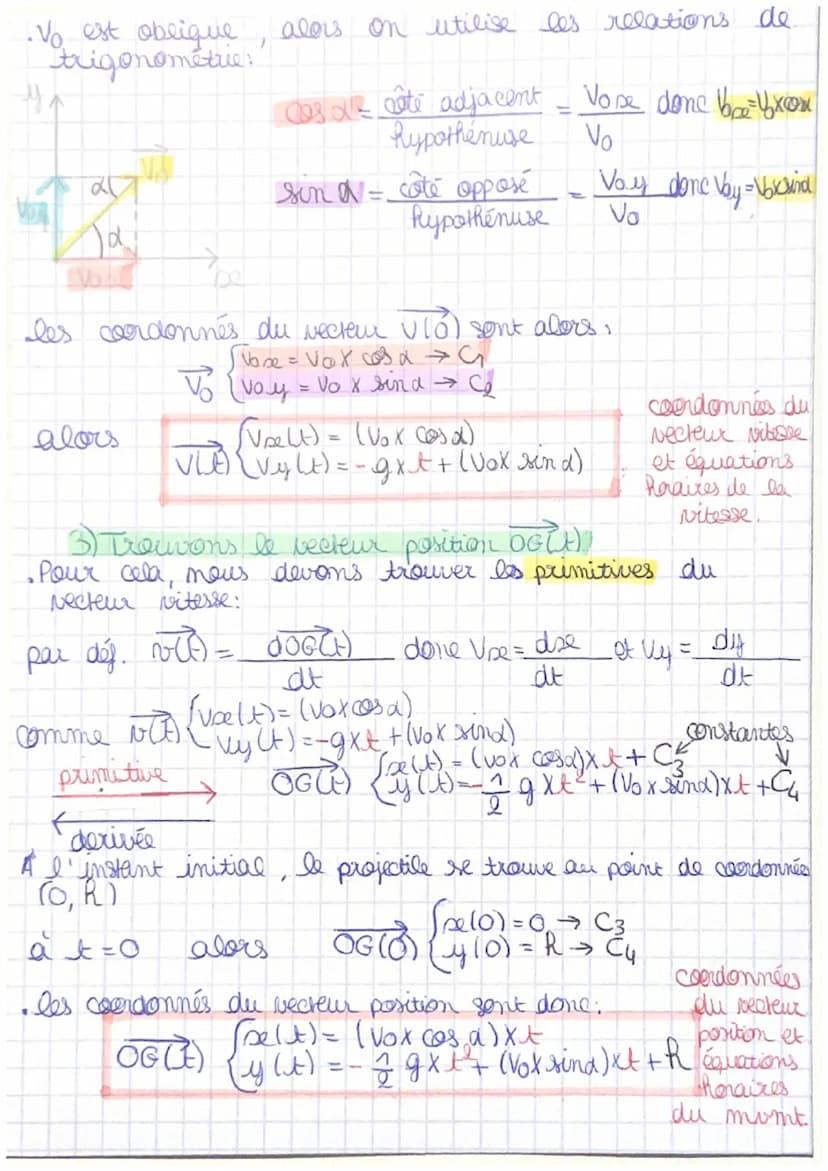 . V₀ est oblique, alors on utilise les relations de
trigonométrie:
y
cos α = côté adjacent / hypothénuse = V₀x / V₀ donc V₀x = V₀ x cosα
α V₀
sin α = côté opposé / hypothénuse = V₀y / V₀ donc V₀y = V₀ x sinα
V₀y α
V₀x x
les coordonnés du vecteur V(0) sont alors:
V₀ { V₀x = V₀ x cos α → C₁
V₀y = V₀ x sin α → C₂
alors V(t) { Vx(t) = (V₀ x cos α)
Vy(t) = - g x t + (V₀ x sin α)
coordonnées du
vecteur vitesse
et équations
horaires de la
vitesse.
3) Trouvons le vecteur position OG(t)
. Pour cela, nous devons trouver les primitives du
vecteur vitesse:
par déf. v(t) = dOG(t) / dt donc Vx = dx / dt et Vy = dy / dt
comme v(t) { Vx(t) = (V₀ x cos α)
Vy(t) = - g x t + (V₀ x sin α)
constantes
primitive
OG(t) { x(t) = (V₀ x cosα) x t + C₃
y(t) = - 1/2 g x t² + (V₀ x sinα) x t + C₄
derivée
A l'instant initial, le projectile se trouve au point de coordonnée
(0, R)
à t = 0 alors OG(0) { x(0) = 0 → C₃
y(0) = R → C₄
. les coordonnés du vecteur position sont donc:
OG(t) { x(t) = (V₀ x cos α) x t
y(t) = - 1/2 g x t² + (V₀ x sinα) x t + R
coordonnées
du vecteur
position et
équations
horaires
du mvmt.